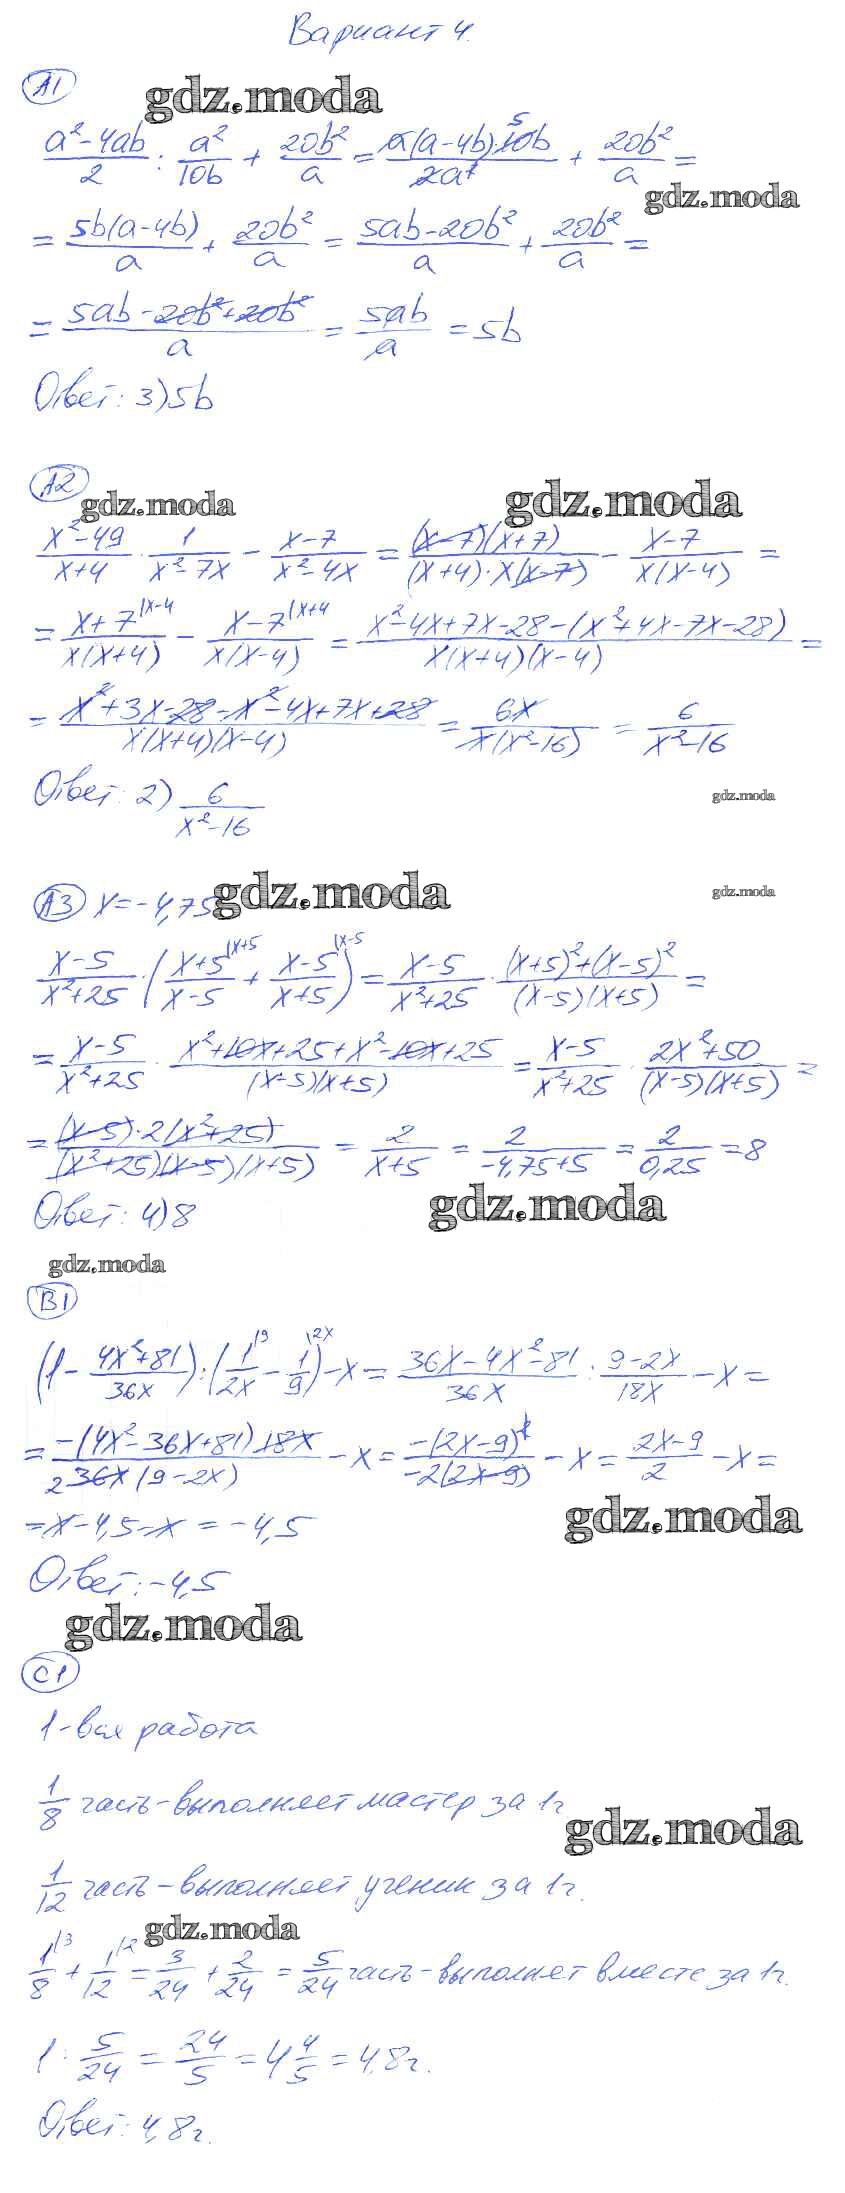 Вариант 4.
А1
gdz.moda
(a² - 4ab)/2 : a²/10b + 20b²/a = a(a-4b)·10b 5/2a² + 20b²/a =
gdz.moda
= 5b(a-4b)/a + 20b²/a = (5ab-20b²)/a + 20b²/a =
= (5ab - 20b² + 20b²)/a = 5ab/a = 5b
Ответ: 3) 5b
А2
gdz.moda gdz.moda
(x²-49)/(x+4) · 1/(x²-7x) - (x-7)/(x²-4x) = (x-7)(x+7)/((x+4)·x(x-7)) - (x-7)/(x(x-4)) =
= (x+7)/(x(x+4)) |x-4 - (x-7)/(x(x-4)) |x+4 = (x²-4x+7x-28-(x²+4x-7x-28))/(x(x+4)(x-4)) =
= (x²+3x-28-x²-4x+7x+28)/(x(x+4)(x-4)) = 6x/(x(x²-16)) = 6/(x²-16)
Ответ: 2) 6/(x²-16)
gdz.moda
А3 x=-4,75
gdz.moda
gdz.moda
(x-5)/(x²+25) · ((x+5)/(x-5) |x+5 + (x-5)/(x+5) |x-5) = (x-5)/(x²+25) · ((x+5)²+(x-5)²)/((x-5)(x+5)) =
= (x-5)/(x²+25) · (x²+10x+25+x²-10x+25)/((x-5)(x+5)) = (x-5)/(x²+25) · (2x²+50)/((x-5)(x+5)) =
= (x-5)·2(x²+25)/((x²+25)(x-5)(x+5)) = 2/(x+5) = 2/(-4,75+5) = 2/0,25 = 8
Ответ: 4) 8
gdz.moda
gdz.moda
В1
(1 - (4x²+81)/36x) : (1/2x |9 - 1/9 |2x) - x = (36x-4x²-81)/36x : (9-2x)/18x - x =
= -(4x²-36x+81)18x/(2 36x(9-2x)) - x = -(2x-9)²/(-2(2x-9)) - x = (2x-9)/2 - x =
= x - 4,5 - x = -4,5
gdz.moda
Ответ: -4,5
gdz.moda
С1
1 - вся работа
1/8 часть - выполняет мастер за 1ч
gdz.moda
1/12 часть - выполняет ученик за 1ч.
gdz.moda
1/8 |3 + 1/12 |2 = 3/24 + 2/24 = 5/24 часть - выполнят вместе за 1ч.
1 : 5/24 = 24/5 = 4 4/5 = 4,8ч.
Ответ: 4,8ч.